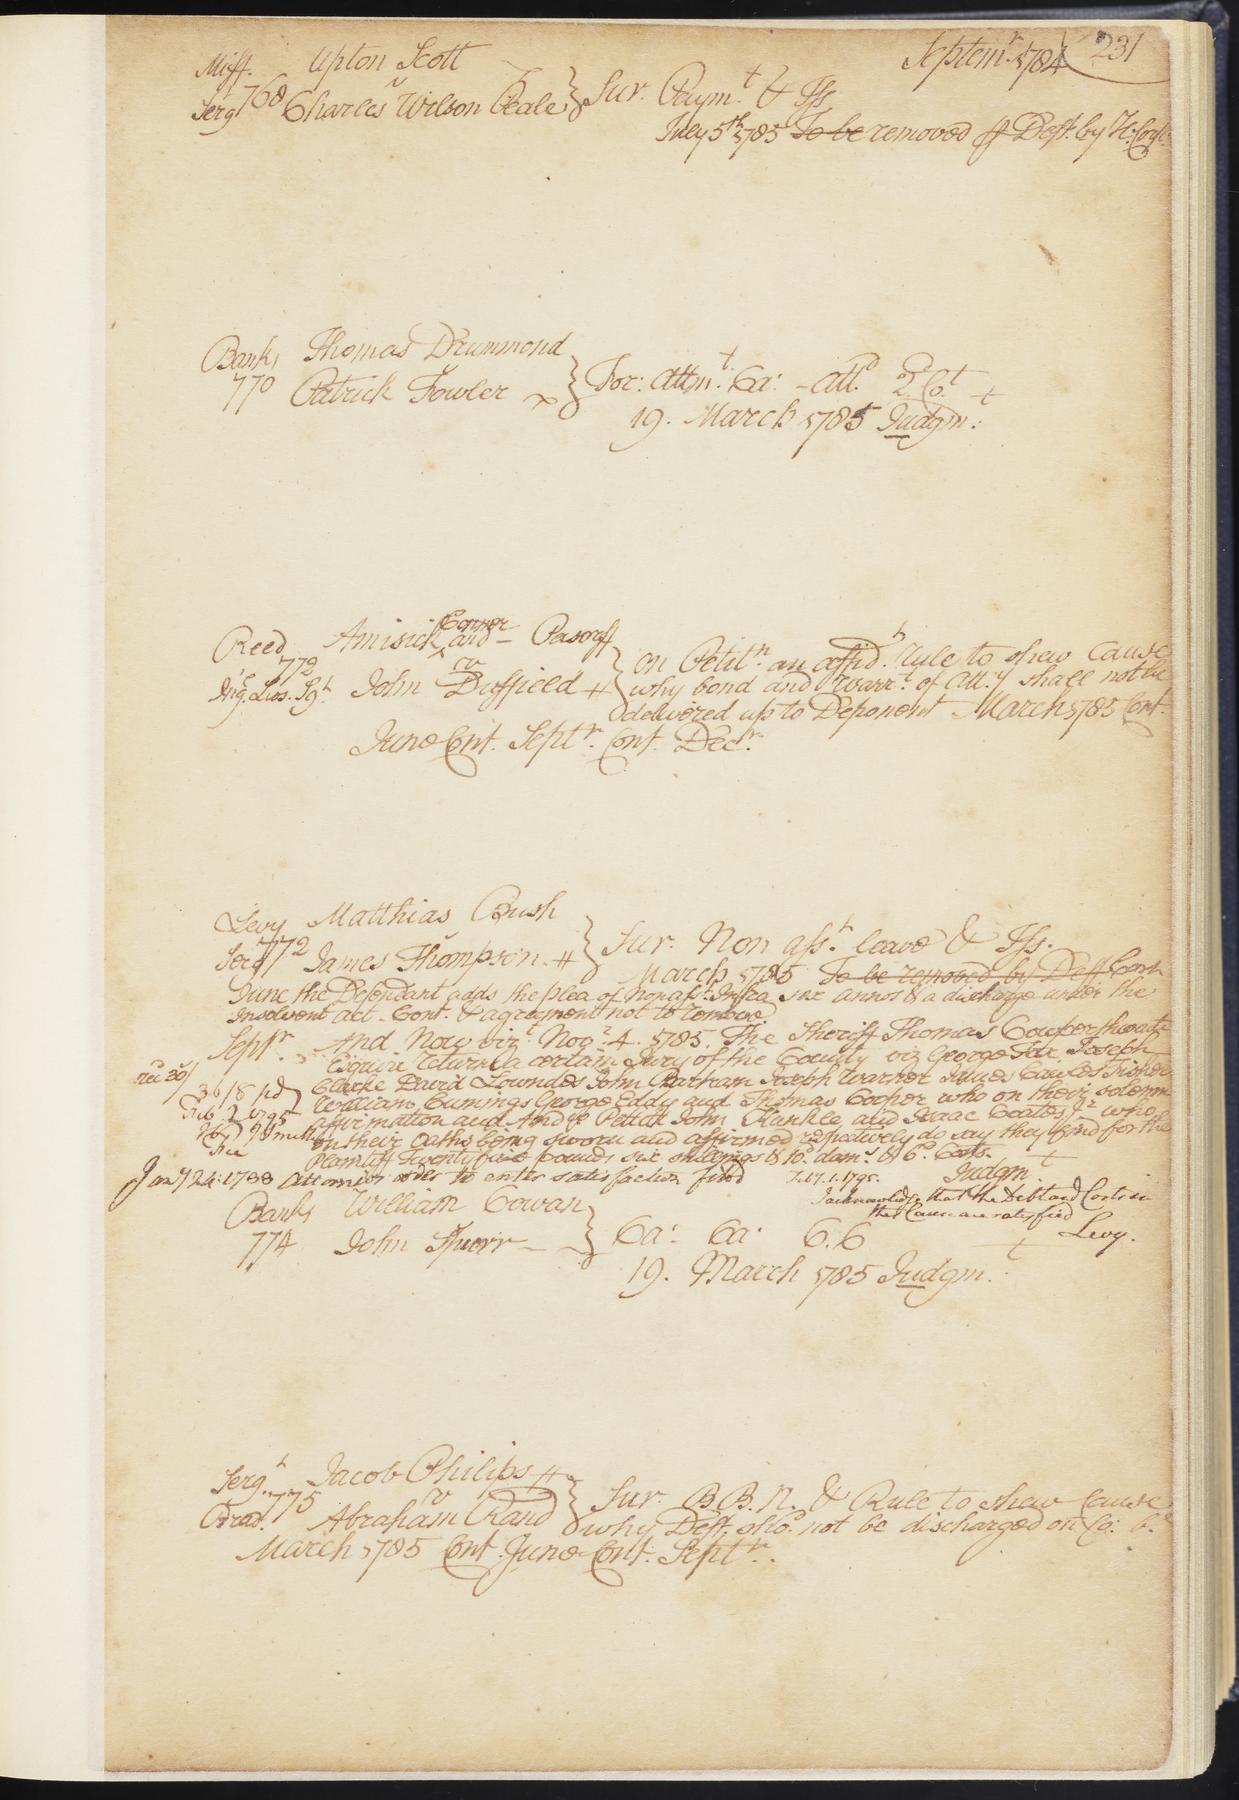 Septem.r 1784 231
Miff. Upton Scott
v
Serg.t 768 Charles Wilson Peale } Sur. Paym.t & Iss
July 5th 1785 To be removed Deft. by H: Corp.
Bank, Thomas Drummond
770 Patrick Fowler } For: attm.t Ca: - att.d
19. March 1785 Judgm.t
Connor
Reed Amisick and - Pasonff
772 v
Ing. Lws. Sg.t John Duffield } on Petit.n an affid. Rule to shew Cause
why bond and Warr.t of Att.y shall not be
delivered up to Deponent March 1785 Cont.
June Cont. Sept.r Cont. Dec.r
Levy Matthias Bush
772 v
Serg.t James Thompson } Sur. Non ass.t leave & Iss.
March 1785 To be removed by Deff Cont
June the Defendant adds the plea of Non ass.t Infra sex annos & a discharge under the
Insolvent act. Cont. & agreement not to remove
Sept.r And Now viz.t Nov.r 4. 1785. The Sheriff Thomas Cowperthwaite
Esquire returns a certain Jury of the County viz George Fox Joseph
Clarke David Lowndes John Bartram Joseph Warner James Cawles Fisher
William Cumings George Eddy and Thomas Cooper who on their solemn
affirmation and And.w Pettit John Kunkle and Isaac Coates J.r who
on their oaths being sworn and affirmed respectively do say they find for the
Plaintiff Twenty five pounds six shillings & 10.d dam.s & 6.d Costs.
Judgm.t
Jan.y 24: 1788 Attornies order to enter satisfaction filed 1795.
I acknowledge that the Debt and Costs in
this Cause are satisfied
Levy.
Bank, William Cowan
774 John Spurr } Ca: Ca: C.C
19. March 1785 Judgm.t
Serg.t Jacob Philips
775 v
Brad. Abraham Rand } Sur. B.B.N. & Rule to shew Cause
why Deft. sho.d not be discharged on Co: b.
March 1785 Cont. June Cont. Sept.r.